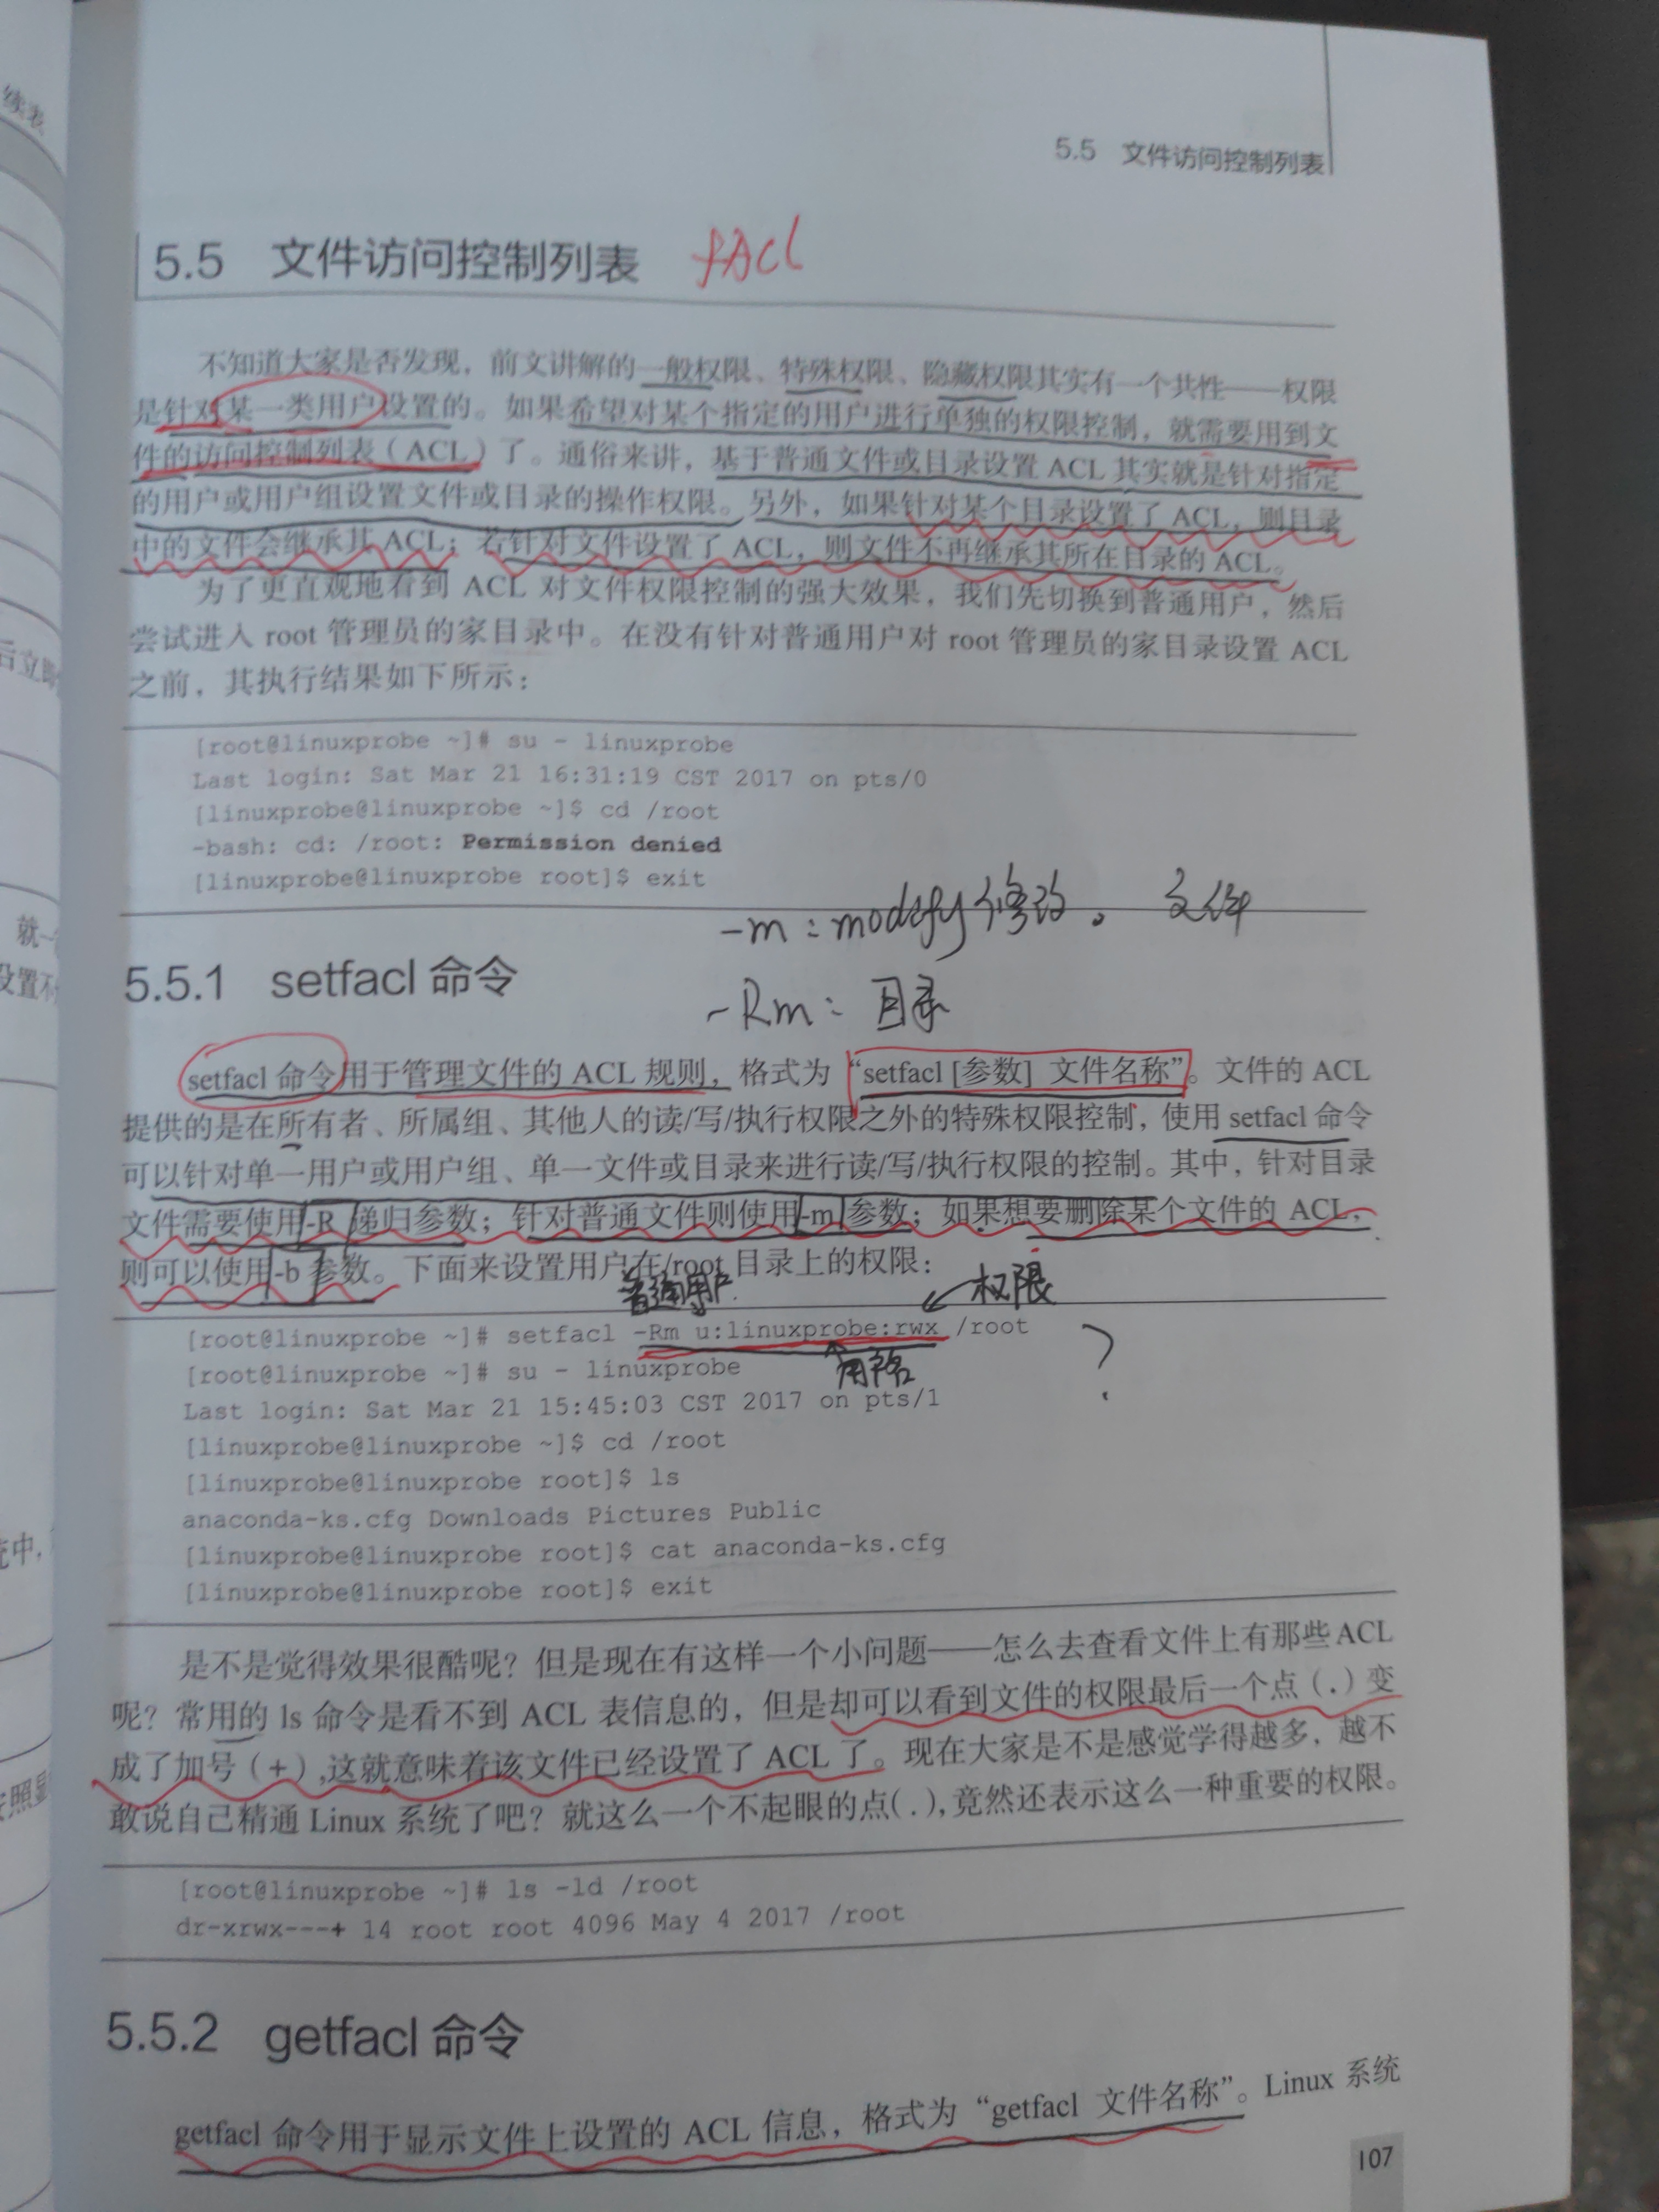 续表
5.5 文件访问控制列表
5.5 文件访问控制列表 fACl
不知道大家是否发现，前文讲解的一般权限、特殊权限、隐藏权限其实有一个共性——权限
是针对某一类用户设置的。如果希望对某个指定的用户进行单独的权限控制，就需要用到文
件的访问控制列表（ACL）了。通俗来讲，基于普通文件或目录设置 ACL 其实就是针对指定
的用户或用户组设置文件或目录的操作权限。另外，如果针对某个目录设置了 ACL，则目录
中的文件会继承其 ACL；若针对文件设置了 ACL，则文件不再继承其所在目录的 ACL。
为了更直观地看到 ACL 对文件权限控制的强大效果，我们先切换到普通用户，然后
尝试进入 root 管理员的家目录中。在没有针对普通用户对 root 管理员的家目录设置 ACL
之前，其执行结果如下所示：
[root@linuxprobe ~]# su - linuxprobe
Last login: Sat Mar 21 16:31:19 CST 2017 on pts/0
[linuxprobe@linuxprobe ~]$ cd /root
-bash: cd: /root: Permission denied
[linuxprobe@linuxprobe root]$ exit
-m：modify修改。 文件
5.5.1 setfacl 命令
-Rm：目录
setfacl 命令用于管理文件的 ACL 规则，格式为“setfacl [参数] 文件名称”。文件的 ACL
提供的是在所有者、所属组、其他人的读/写/执行权限之外的特殊权限控制，使用 setfacl 命令
可以针对单一用户或用户组、单一文件或目录来进行读/写/执行权限的控制。其中，针对目录
文件需要使用-R 递归参数；针对普通文件则使用-m 参数；如果想要删除某个文件的 ACL，
则可以使用-b 参数。下面来设置用户在/root 目录上的权限：
普通用户 权限
[root@linuxprobe ~]# setfacl -Rm u:linuxprobe:rwx /root ?
[root@linuxprobe ~]# su - linuxprobe
用户名
Last login: Sat Mar 21 15:45:03 CST 2017 on pts/1
[linuxprobe@linuxprobe ~]$ cd /root
[linuxprobe@linuxprobe root]$ ls
anaconda-ks.cfg Downloads Pictures Public
[linuxprobe@linuxprobe root]$ cat anaconda-ks.cfg
[linuxprobe@linuxprobe root]$ exit
是不是觉得效果很酷呢？但是现在有这样一个小问题——怎么去查看文件上有那些 ACL
呢？常用的 ls 命令是看不到 ACL 表信息的，但是却可以看到文件的权限最后一个点（.）变
成了加号（+）,这就意味着该文件已经设置了 ACL 了。现在大家是不是感觉学得越多，越不
敢说自己精通 Linux 系统了吧？就这么一个不起眼的点（.）,竟然还表示这么一种重要的权限。
[root@linuxprobe ~]# ls -ld /root
dr-xrwx---+ 14 root root 4096 May 4 2017 /root
5.5.2 getfacl 命令
getfacl 命令用于显示文件上设置的 ACL 信息，格式为“getfacl 文件名称”。Linux 系统
107